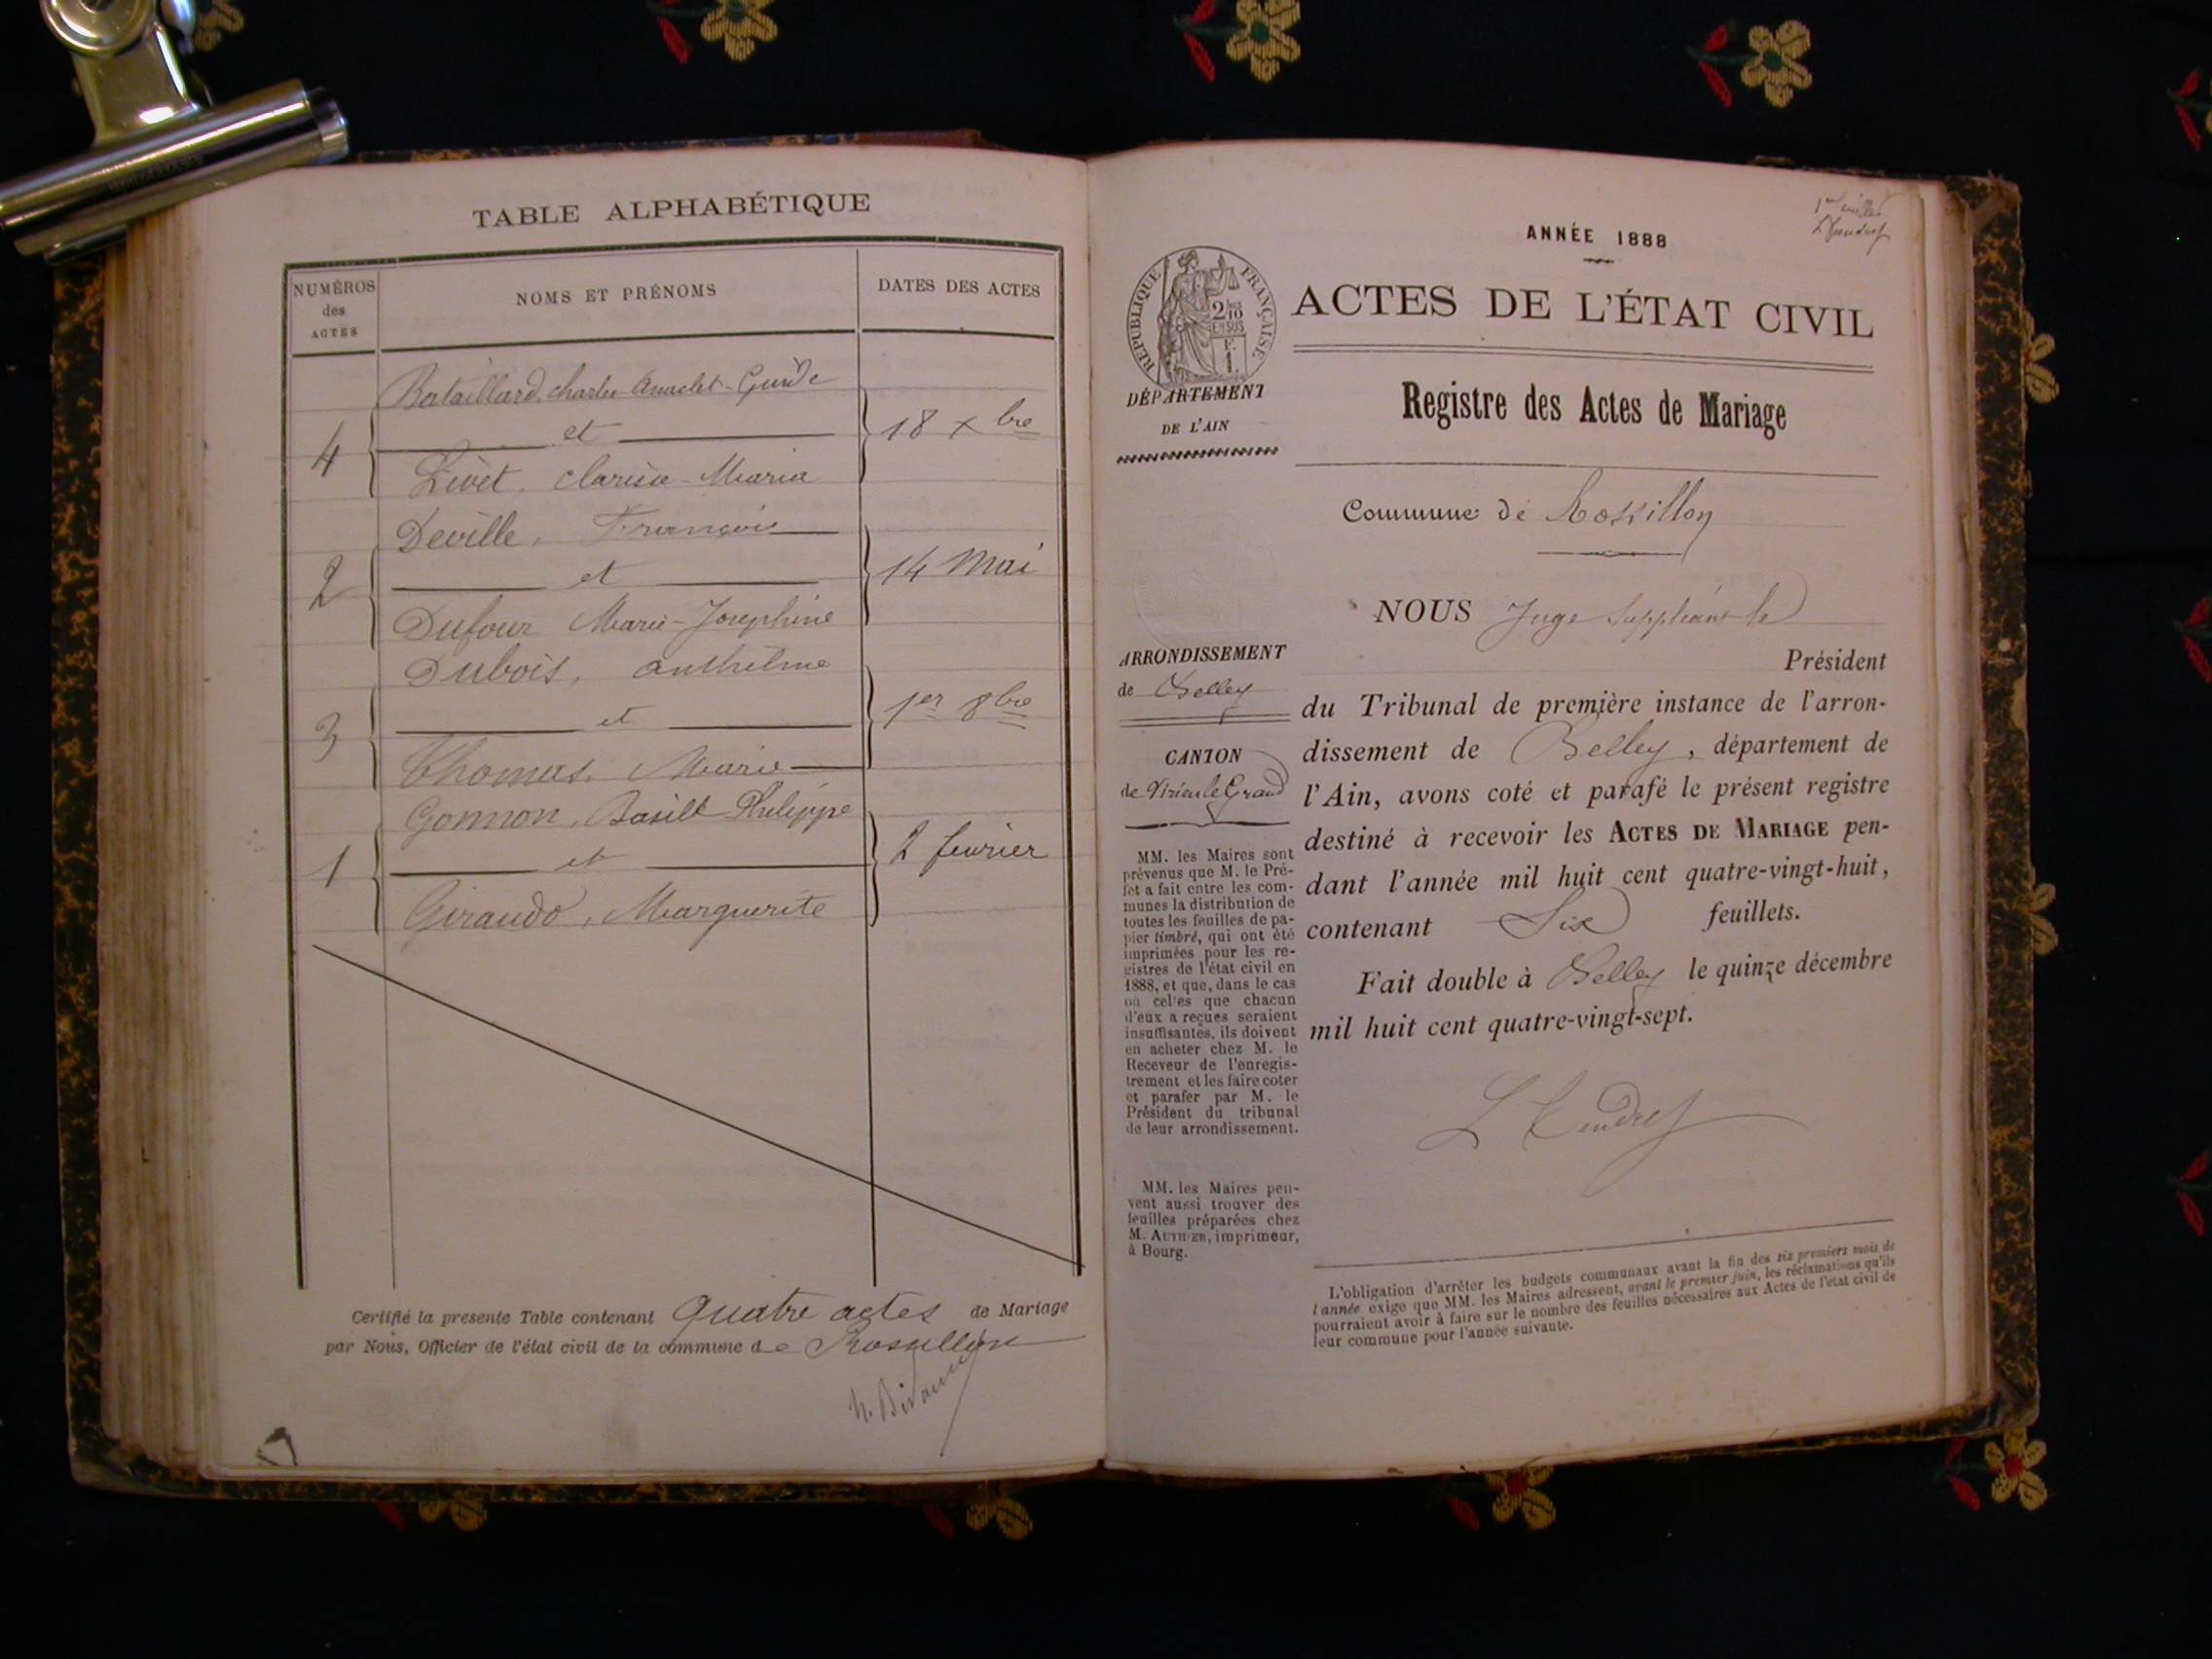 TABLE ALPHABÉTIQUE
NUMÉROS
des
ACTES
NOMS ET PRÉNOMS
DATES DES ACTES
Bataillard, charles Anaclet
4 et 18 Xbre
Livet, Maria
Deville, François
2 et 14 Mai
Dufour Marie-Josephine
Dubois, anthelme
3 et 1er 8bre
Thomas, Marie
Gonnon, Basile Philippe
1 et 2 fevrier
Giraudo, Marguerite
Certifié la presente Table contenant quatre actes de Mariage
par Nous, Officier de l'état civil de la commune de Rossillon
ANNÉE 1888
RÉPUBLIQUE FRANÇAISE
2/10
EN SUS
F.
1.
ACTES DE L'ÉTAT CIVIL
DÉPARTEMENT
DE L'AIN
Registre des Actes de Mariage
Commune de Rossillon
NOUS Juge Suppléant le
Président
du Tribunal de première instance de l'arron-
dissement de Belley, département de
l'Ain, avons coté et parafé le présent registre
destiné à recevoir les ACTES DE MARIAGE pen-
dant l'année mil huit cent quatre-vingt-huit,
contenant Six feuillets.
Fait double à Belley le quinze décembre
mil huit cent quatre-vingt-sept.
ARRONDISSEMENT
de Belley
CANTON
de Virieu le Grand
MM. les Maires sont
prévenus que M. le Pré-
fet a fait entre les com-
munes la distribution de
toutes les feuilles de pa-
pier timbré, qui ont été
imprimées pour les re-
gistres de l'état civil en
1888, et que, dans le cas
où celles que chacun
d'eux a reçues seraient
insuffisantes, ils doivent
en acheter chez M. le
Receveur de l'enregis-
trement et les faire coter
et parafer par M. le
Président du tribunal
de leur arrondissement.
MM. les Maires peu-
vent aussi trouver des
feuilles préparées chez
M. AUTHIER, imprimeur,
à Bourg.
L'obligation d'arrêter les budgets communaux avant la fin des six premiers mois de
l'année exige que MM. les Maires adressent, avant le premier juin, les réclamations qu'ils
pourraient avoir à faire sur le nombre des feuilles nécessaires aux Actes de l'état civil de
leur commune pour l'année suivante.